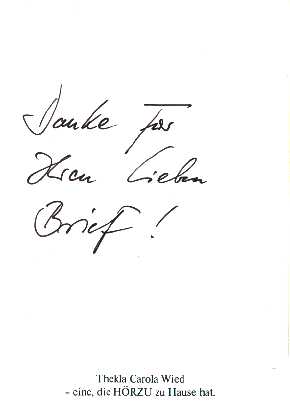 Danke für
Ihren lieben
Brief!
Thekla Carola Wied
- eine, die HÖRZU zu Hause hat.